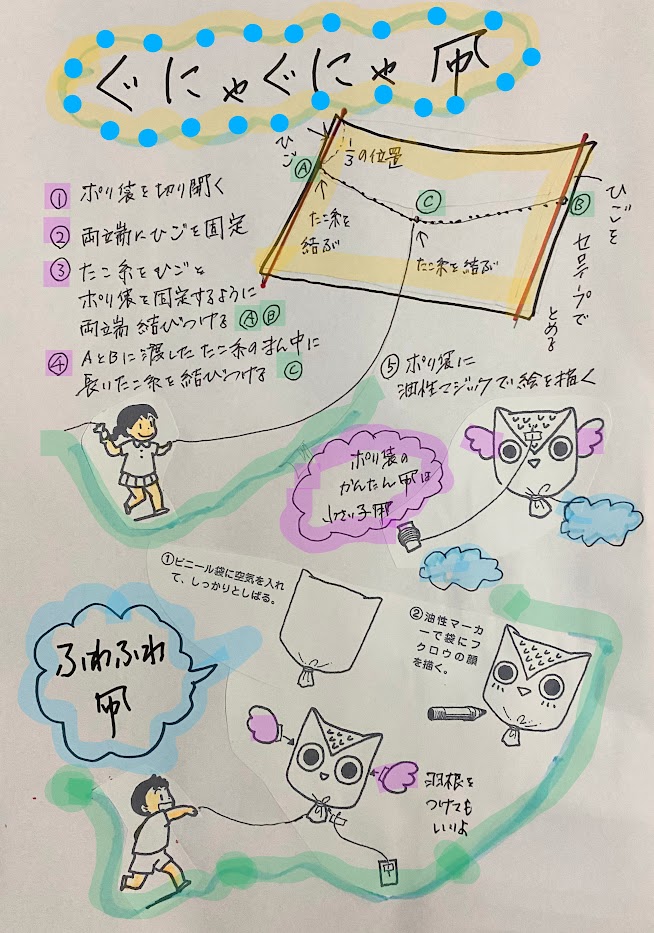 ぐにゃぐにゃ凧
① ポリ袋を切り開く
② 両端にひごを固定
③ たこ糸をひごと
ポリ袋を固定するように
両端結びつける Ⓐ Ⓑ
④ AとBに渡したたこ糸のまん中に
長いたこ糸を結びつける Ⓒ
ひご
1/3の位置
Ⓐ
たこ糸を
結ぶ
Ⓒ
たこ糸を結ぶ
Ⓑ
ひごを
セロテープで
とめる
⑤ ポリ袋に
油性マジックで絵を描く
ポリ袋の
かんたん凧は
小さい子用
①ビニール袋に空気を入れ
て、しっかりとしばる。
②油性マーカ
ーで袋にフ
クロウの顔
を描く。
ふわふわ
凧
羽根を
つけても
いいよ